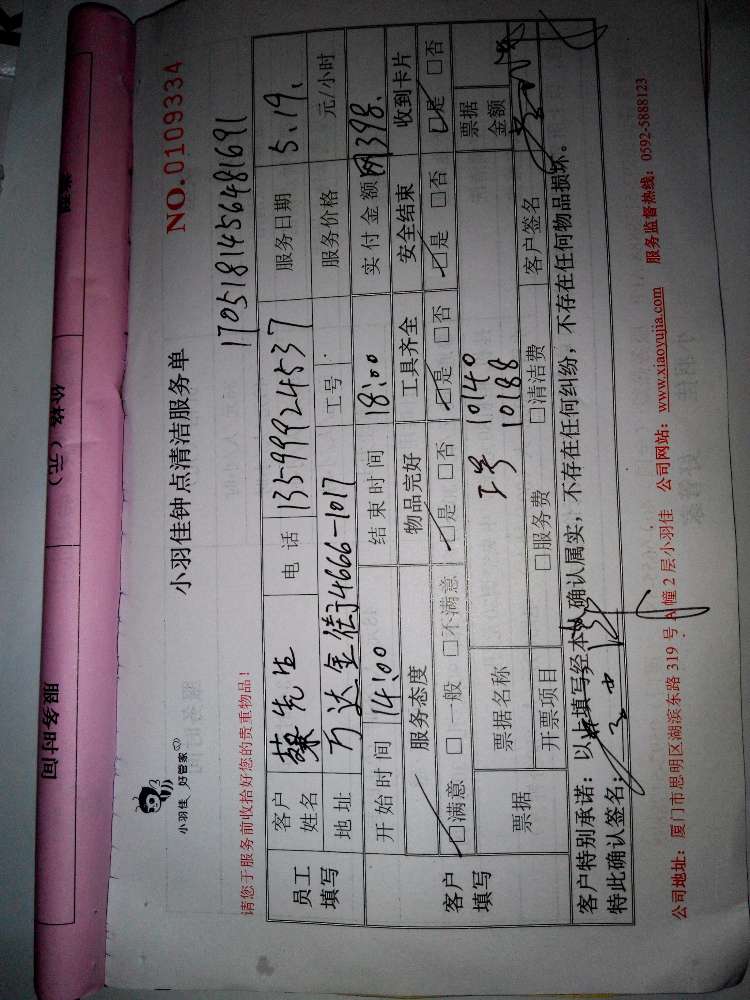 服务时间 价格（元）
小羽佳 好管家
小羽佳钟点清洁服务单
NO.0109334
请您于服务前收拾好您的贵重物品！
17051814564481691
员工填写 客户姓名 蔡先生 电话 13599924537 服务日期 5.19.
地址 万达金街34666-1017 工号 服务价格 元/小时
客户填写 开始时间 14:00 结束时间 18:00 实付金额 网398.
服务态度 物品完好 工具齐全 安全结束 收到卡片
□满意 □一般 □不满意 □是 □否 □是 □否 □是 □否 □是 □否
票据 票据名称 工号 10140 10188 票据金额
开票项目 □服务费 □清洁费 客户签名
客户特别承诺：以上填写经本人确认属实，不存在任何纠纷，不存在任何物品损坏。
特此确认签名：
公司地址：厦门市思明区湖滨东路 319 号 A 幢 2 层小羽佳 公司网站：www.xiaoyujia.com 服务监督热线：0592-5888123